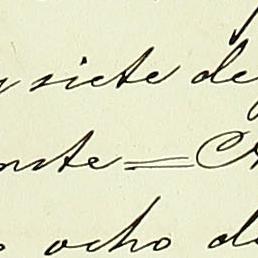 y siete de
nste=
ocho de